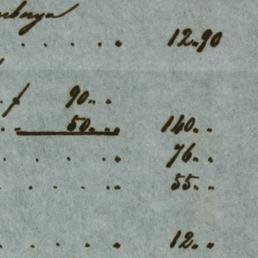 . . . . 12.90
f 90. .
. . 50. . 140. .
. . . . 76. .
. . . . 55. .
. . . . 12. .